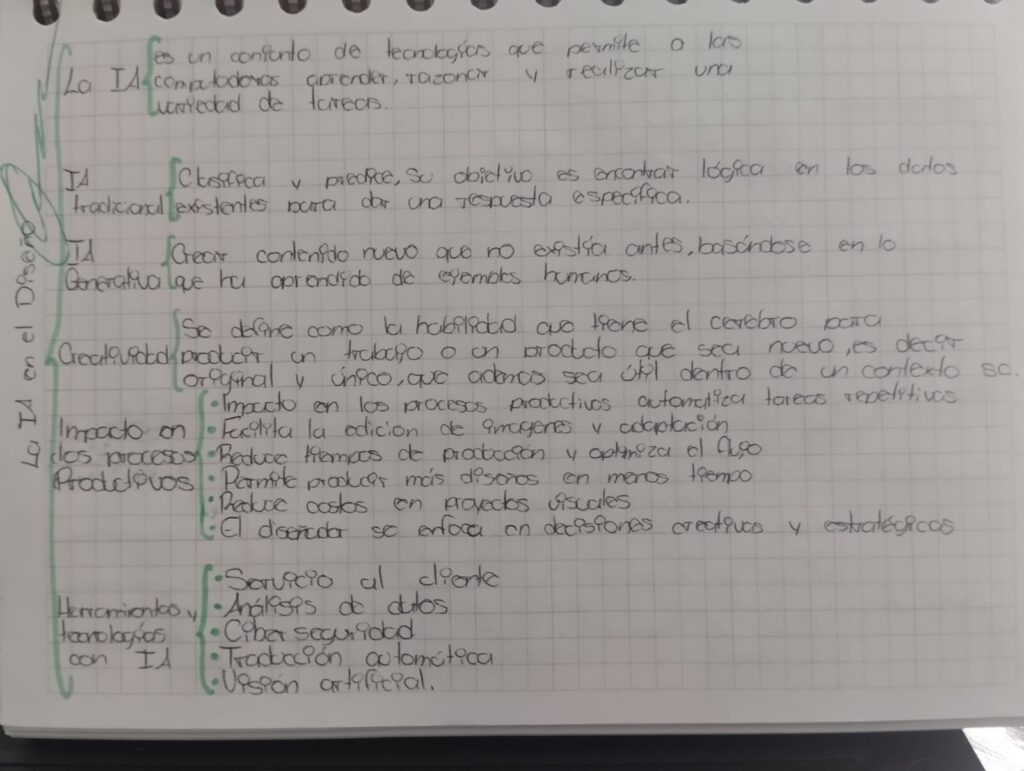 La IA en el Diseño
La IA
es un conjunto de tecnologías que permite a las
computadoras aprender, razonar y realizar una
variedad de tareas.
IA
tradicional
Clasifica y predice, Su objetivo es encontrar lógica en los datos
existentes para dar una respuesta especifica.
IA
Generativa
Crear contenido nuevo que no existia antes, basándose en lo
que ha aprendido de ejemplos humanos.
Creatividad
Se define como la habilidad que tiene el cerebro para
producir un trabajo o un producto que sea nuevo, es decir
original y único, que ademas sea útil dentro de un contexto sc.
Impacto en
los procesos
Productivos
• Impacto en los procesos productivos automatiza tareas repetitivas
• Facilita la edicion de imagenes y adaptación
• Reduce tiempos de producción y optimiza el flujo
• Permite producir más diseños en menos tiempo
• Reduce costos en proyectos visuales
• El diseñador se enfoca en decisiones creativas y estratégicas
Herramientas y
tecnologías
con IA
• Servicio al cliente
• Análisis de datos
• Ciber seguridad
• Traducción automática
• Visión artificial.